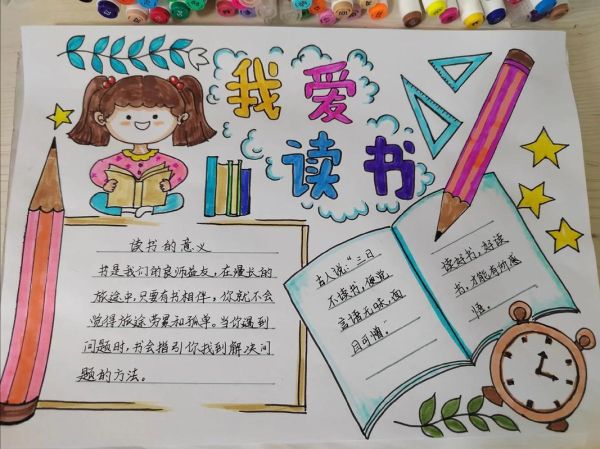 我爱
读书
读书的意义
书是我们的良师益友，在漫长的
旅途中，只要有书相伴，你就不会
觉得旅途劳累和孤单。当你遇到
问题时，书会指引你找到解决问
题的方法。
古人说：“三日
不读书，便觉
言语无味，面
目可憎。
读好书，好读
书，才能有所感
悟。